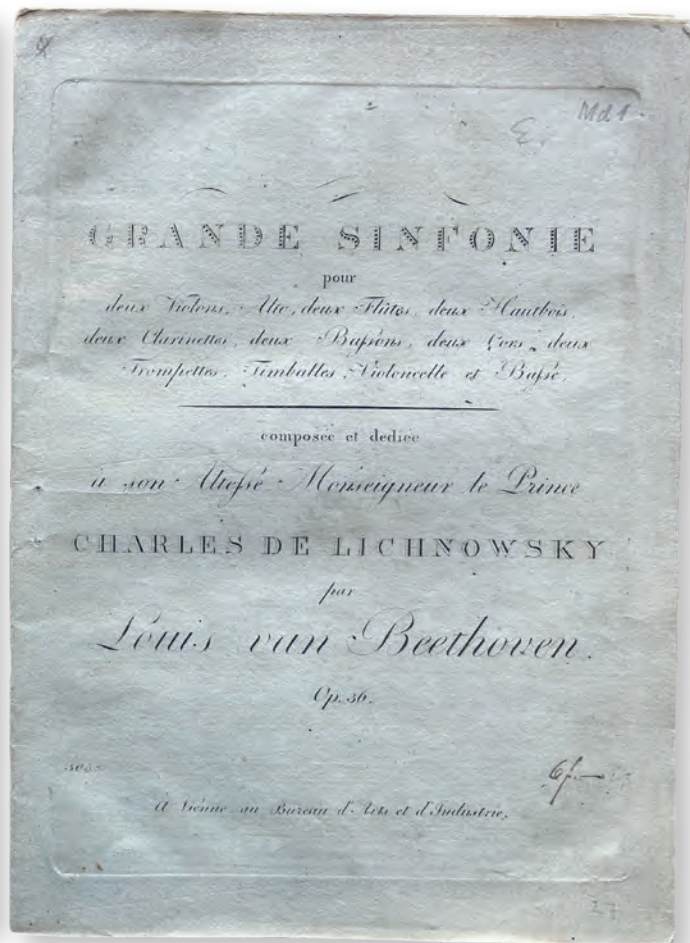 Md 1.
GRANDE SINFONIE
pour
deux Violons, Alto, deux Flûtes, deux Hautbois,
deux Clarinettes, deux Bassons, deux Cors, deux
Trompettes, Timballes, Violoncelle et Basse,
composée et dediée
à son Altesse Monseigneur le Prince
CHARLES DE LICHNOWSKY
par
Louis van Beethoven.
Op. 36.
6f.—
à Vienne au Bureau d'Arts et d'Industrie,
27